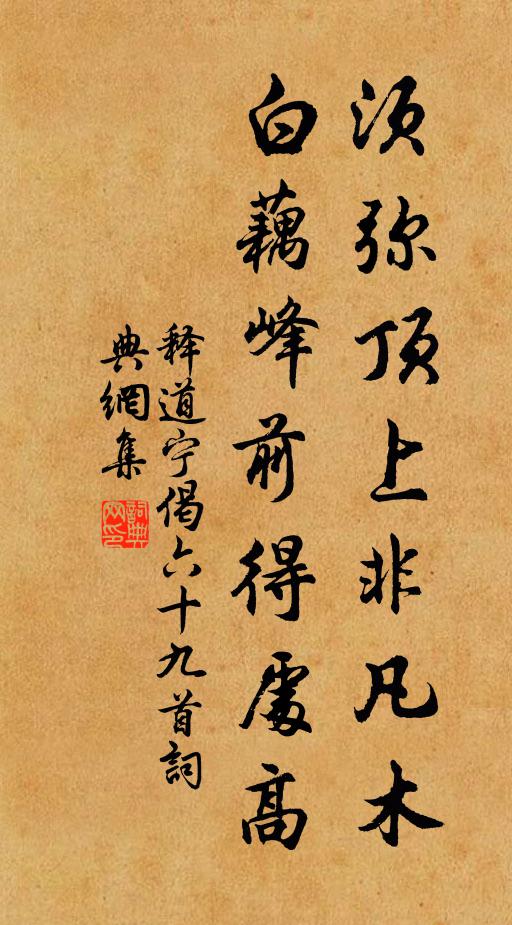 须弥顶上非凡木
白藕峰前得處高
释道宁偈六十九首詞
典網集
詞典网印